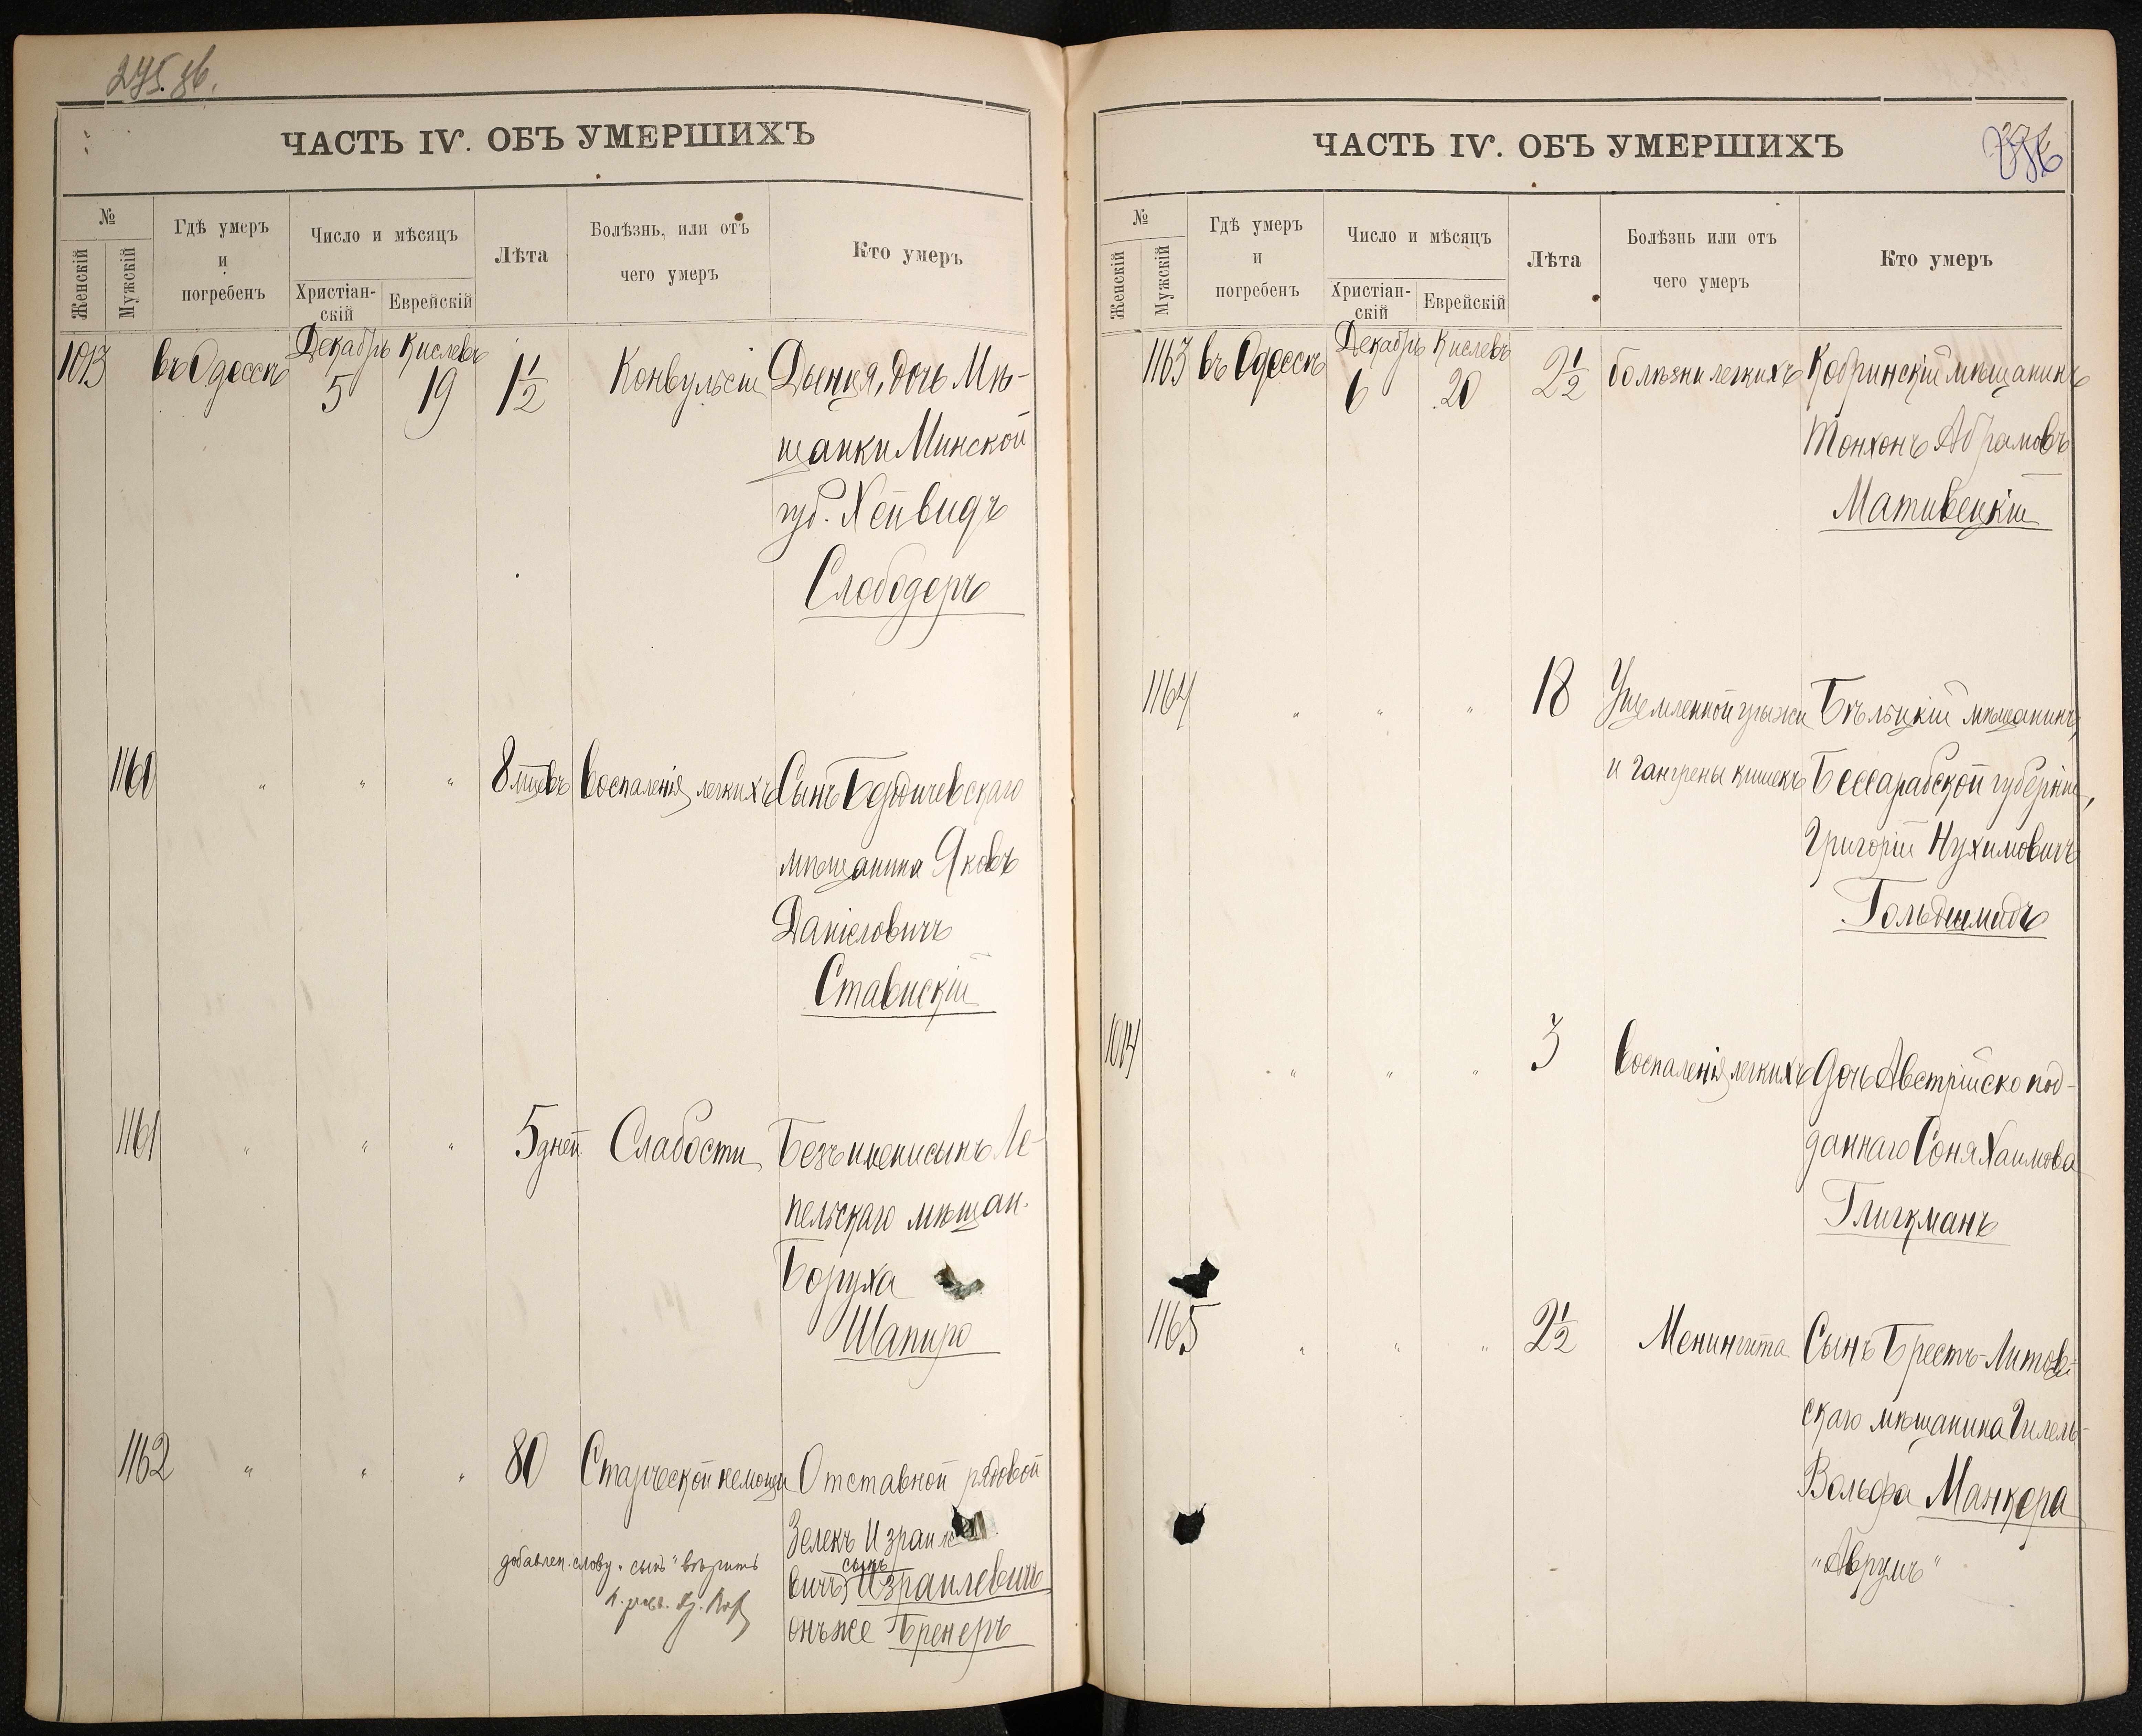 275 об.
ЧАСТЬ IV. ОБЪ УМЕРШИХЪ
№
Женскій
Мужскій
Гдѣ умеръ
и
погребенъ
Число и мѣсяцъ
Христіан-
скій
Еврейскій
Лѣта
Болѣзнь, или отъ
чего умеръ
Кто умеръ
Декабрь Кислевъ
1013 въ Одессѣ 5 19 1½ Конвульсіи Двейня, дочь Мѣ-
щанки Минской
губ.
Слободеръ
1160 " " " 8 мѣсцевъ Воспаленія легкихъ Сынъ Бердичевскаго
мѣщанина Яковъ
Даніеловичъ
Ставискій
1161 " " " 5 дней Слабости Безъ имени сынъ Ле-
пельскаго мѣщан.
Боруха
Шапиро
1162 " " " 80 Старческой немощи Отставной рядовой
Зелекъ Израиле
вичъ, сынъ Израилевичъ
онъ же Бренеръ
добавлен. слову "сынъ" вѣрить
ЧАСТЬ IV. ОБЪ УМЕРШИХЪ
276
№
Женскій
Мужскій
Гдѣ умеръ
и
погребенъ
Число и мѣсяцъ
Христіан-
скій
Еврейскій
Лѣта
Болѣзнь или отъ
чего умеръ
Кто умеръ
Декабрь Кислевъ
1163 въ Одессѣ 6 20 2½ болѣзни легкихъ Кобринскій мѣщанинъ
Тонхонъ Абрамовъ
Мативецкій
1164 " " " 18 Ущемленной грыжи Бѣльцкій мѣщанинъ,
и гангрены кишекъ Бессарабской губерніи,
Григорій Нухимовичъ
Гольдшмидъ
1014 " " " 3 Воспаленія легкихъ Дочь Австрійско под-
даннаго Соня Хаимова
Глигкманъ
1165 " " " 2½ Менингита Сынъ Брестъ-Литов-
скаго мѣщанина Гилель-
Вольфа Манкера
"Аврумъ"